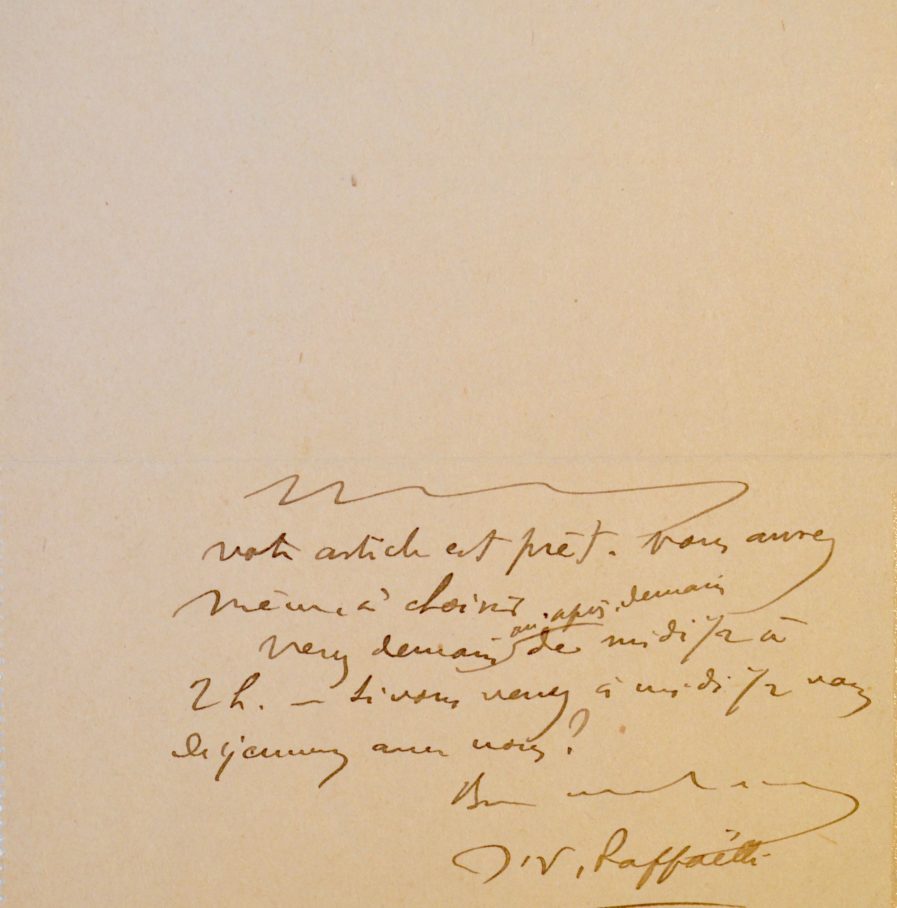 votre article est prêt. Vous aurez
même à choisir
ou après-demain
Venez demain de midi 1/2 à
2 h. — Si vous venez à midi 1/2 vous
déjeunerez avec nous ?
J. F. Raffaëlli